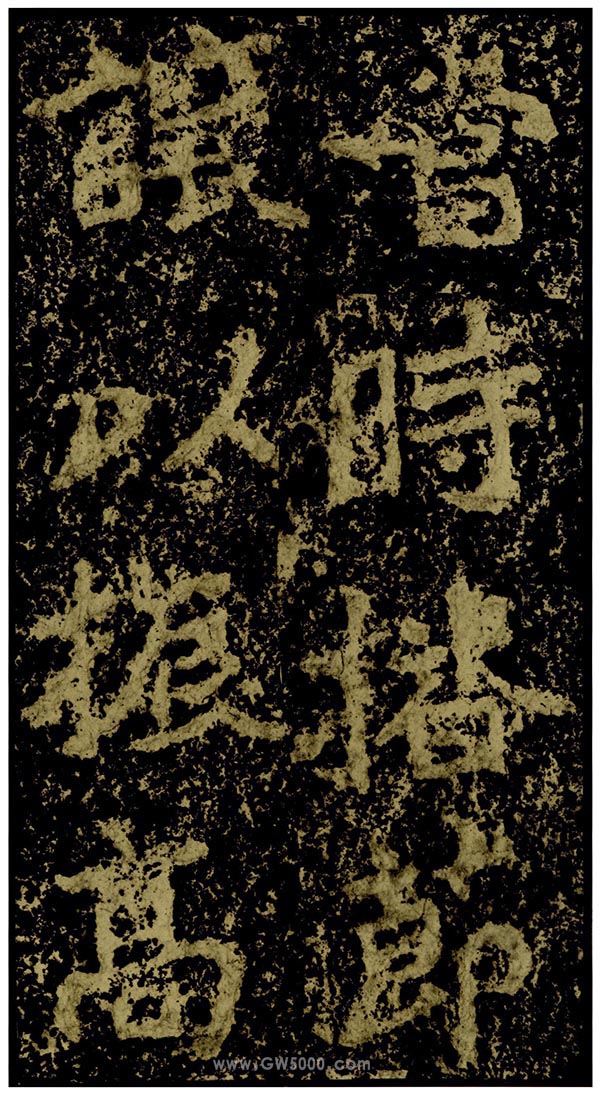 當時播節
讓以振高
www.GW5000.com